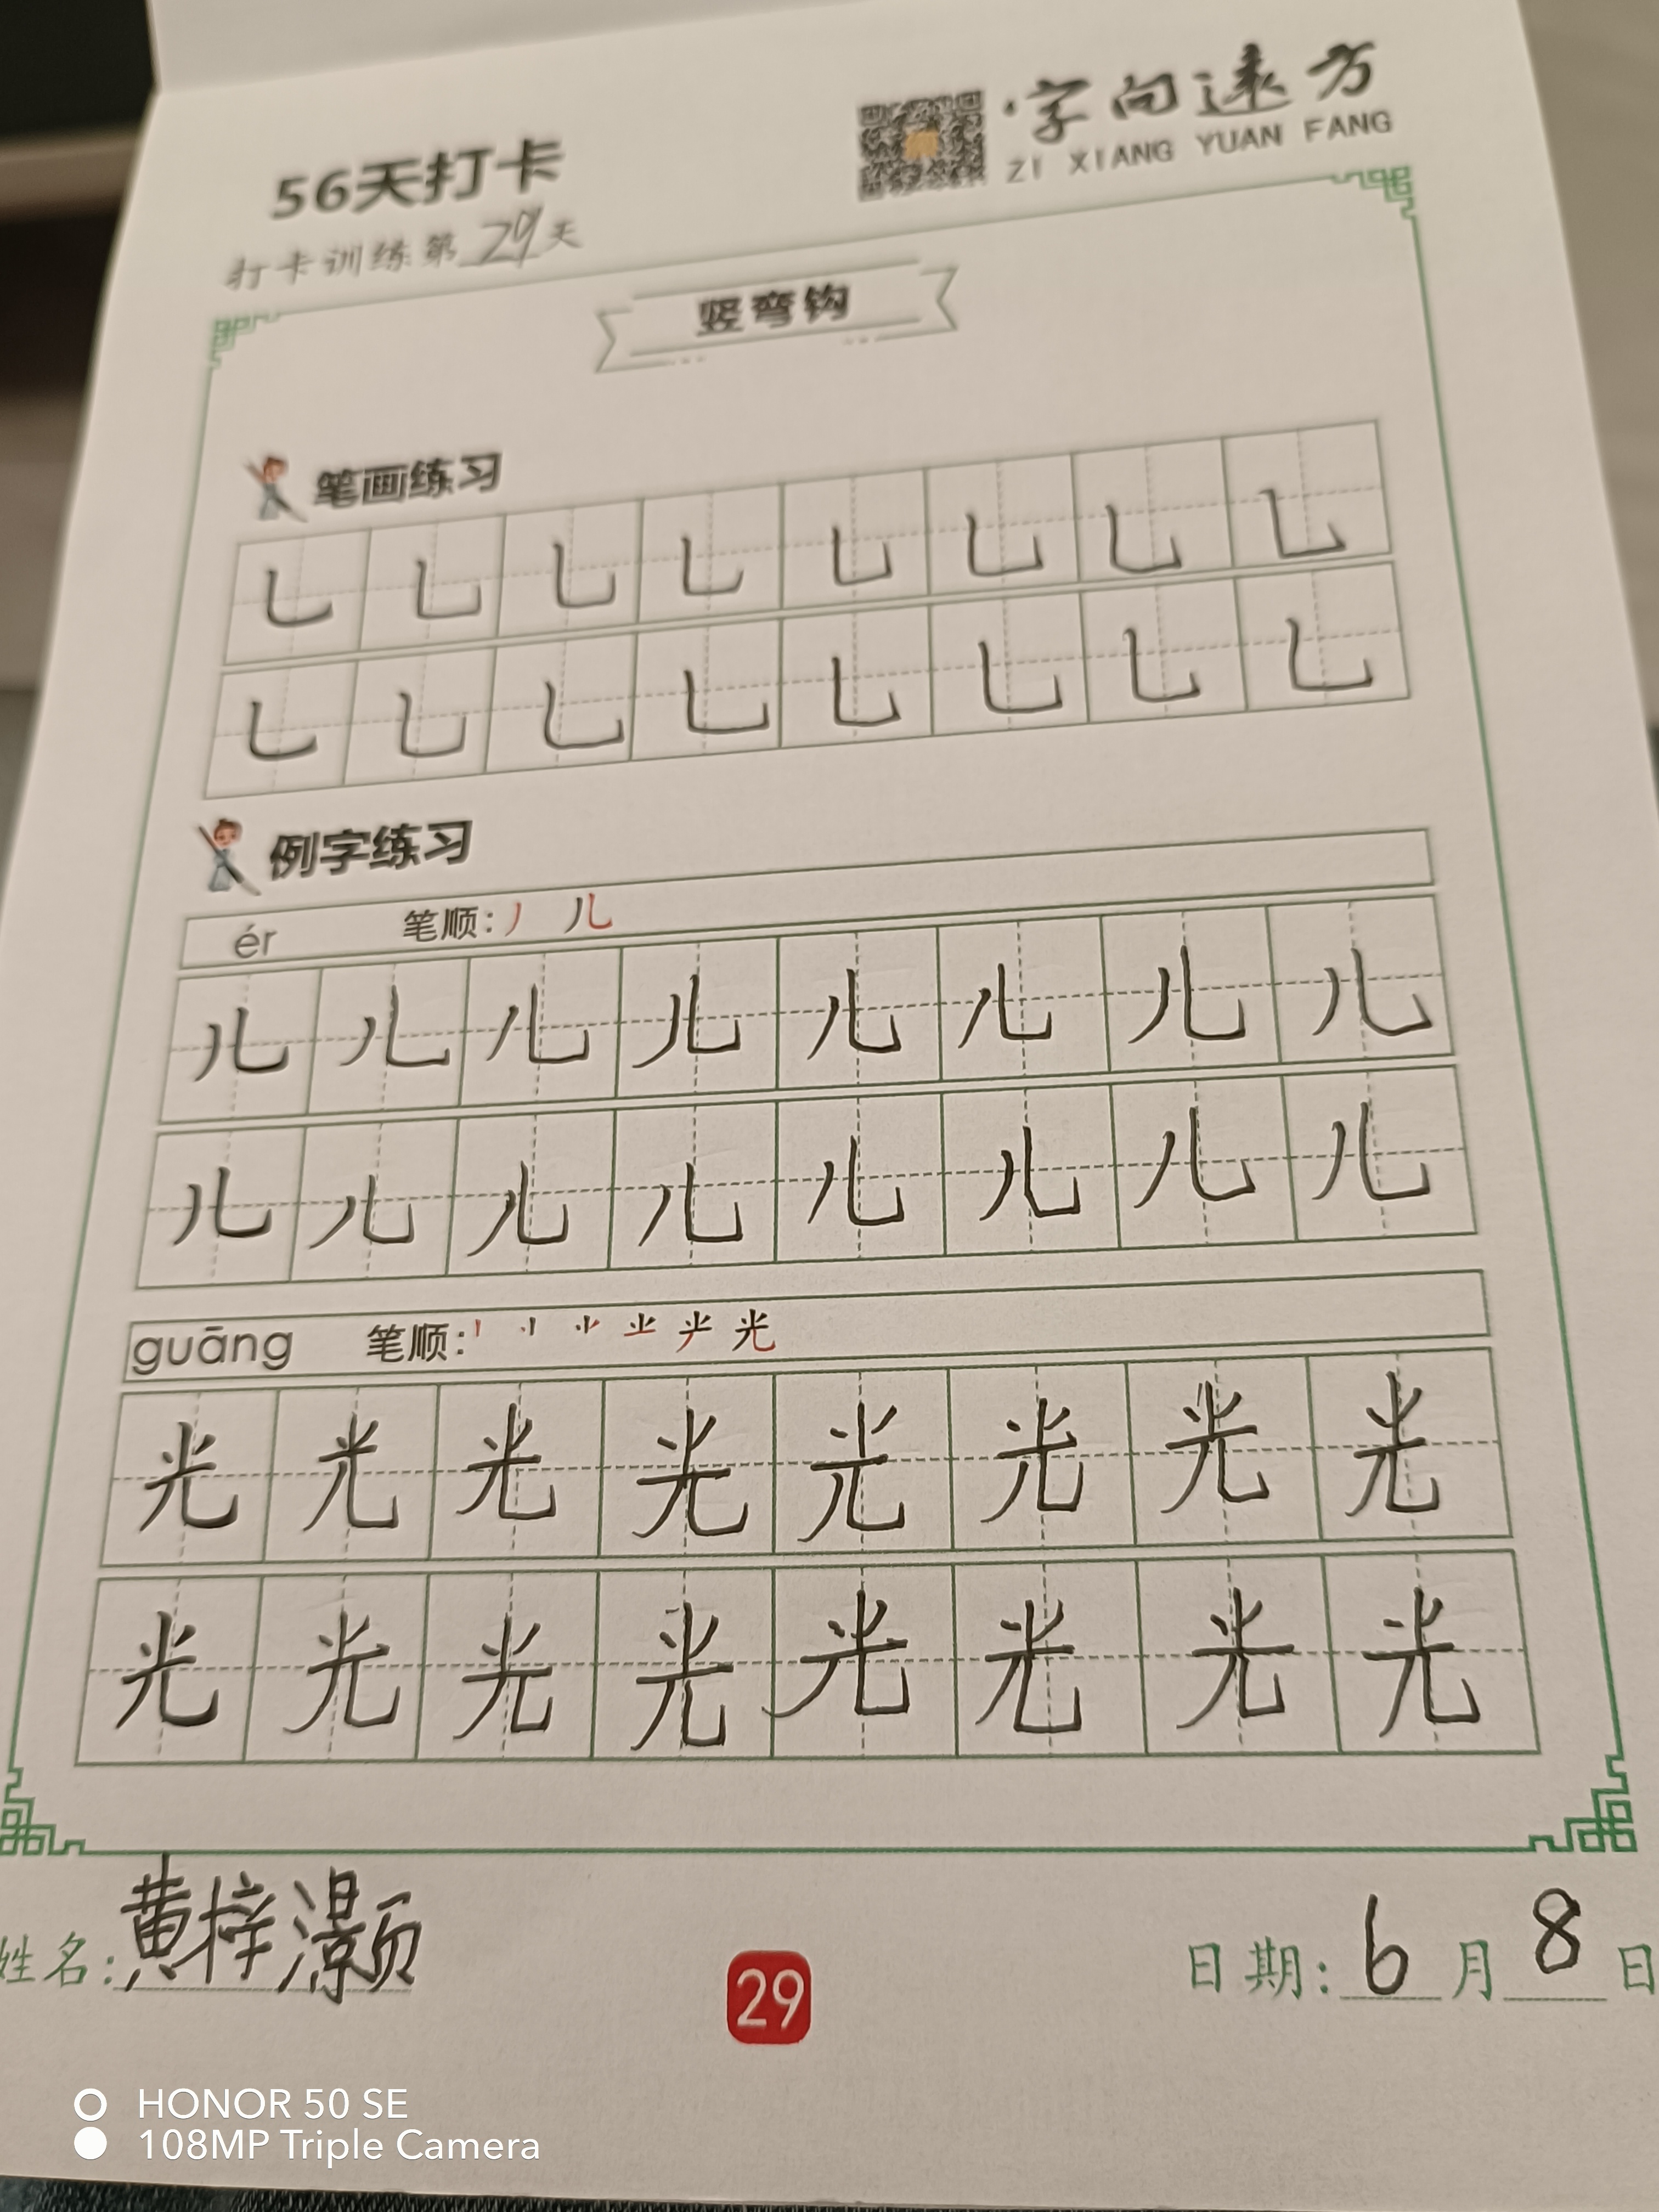 56天打卡
·字向远方
ZI XIANG YUAN FANG
打卡训练第29天
竖弯钩
笔画练习
㇟㇟㇟㇟㇟㇟㇟㇟
㇟㇟㇟㇟㇟㇟㇟㇟
例字练习
ér 笔顺:丿 儿
儿儿儿儿儿儿儿儿
儿儿儿儿儿儿儿儿
guāng 笔顺: 光
光光光光光光光光
光光光光光光光光
姓名:黄梓灏
29
日期:6月8日
HONOR 50 SE
108MP Triple Camera